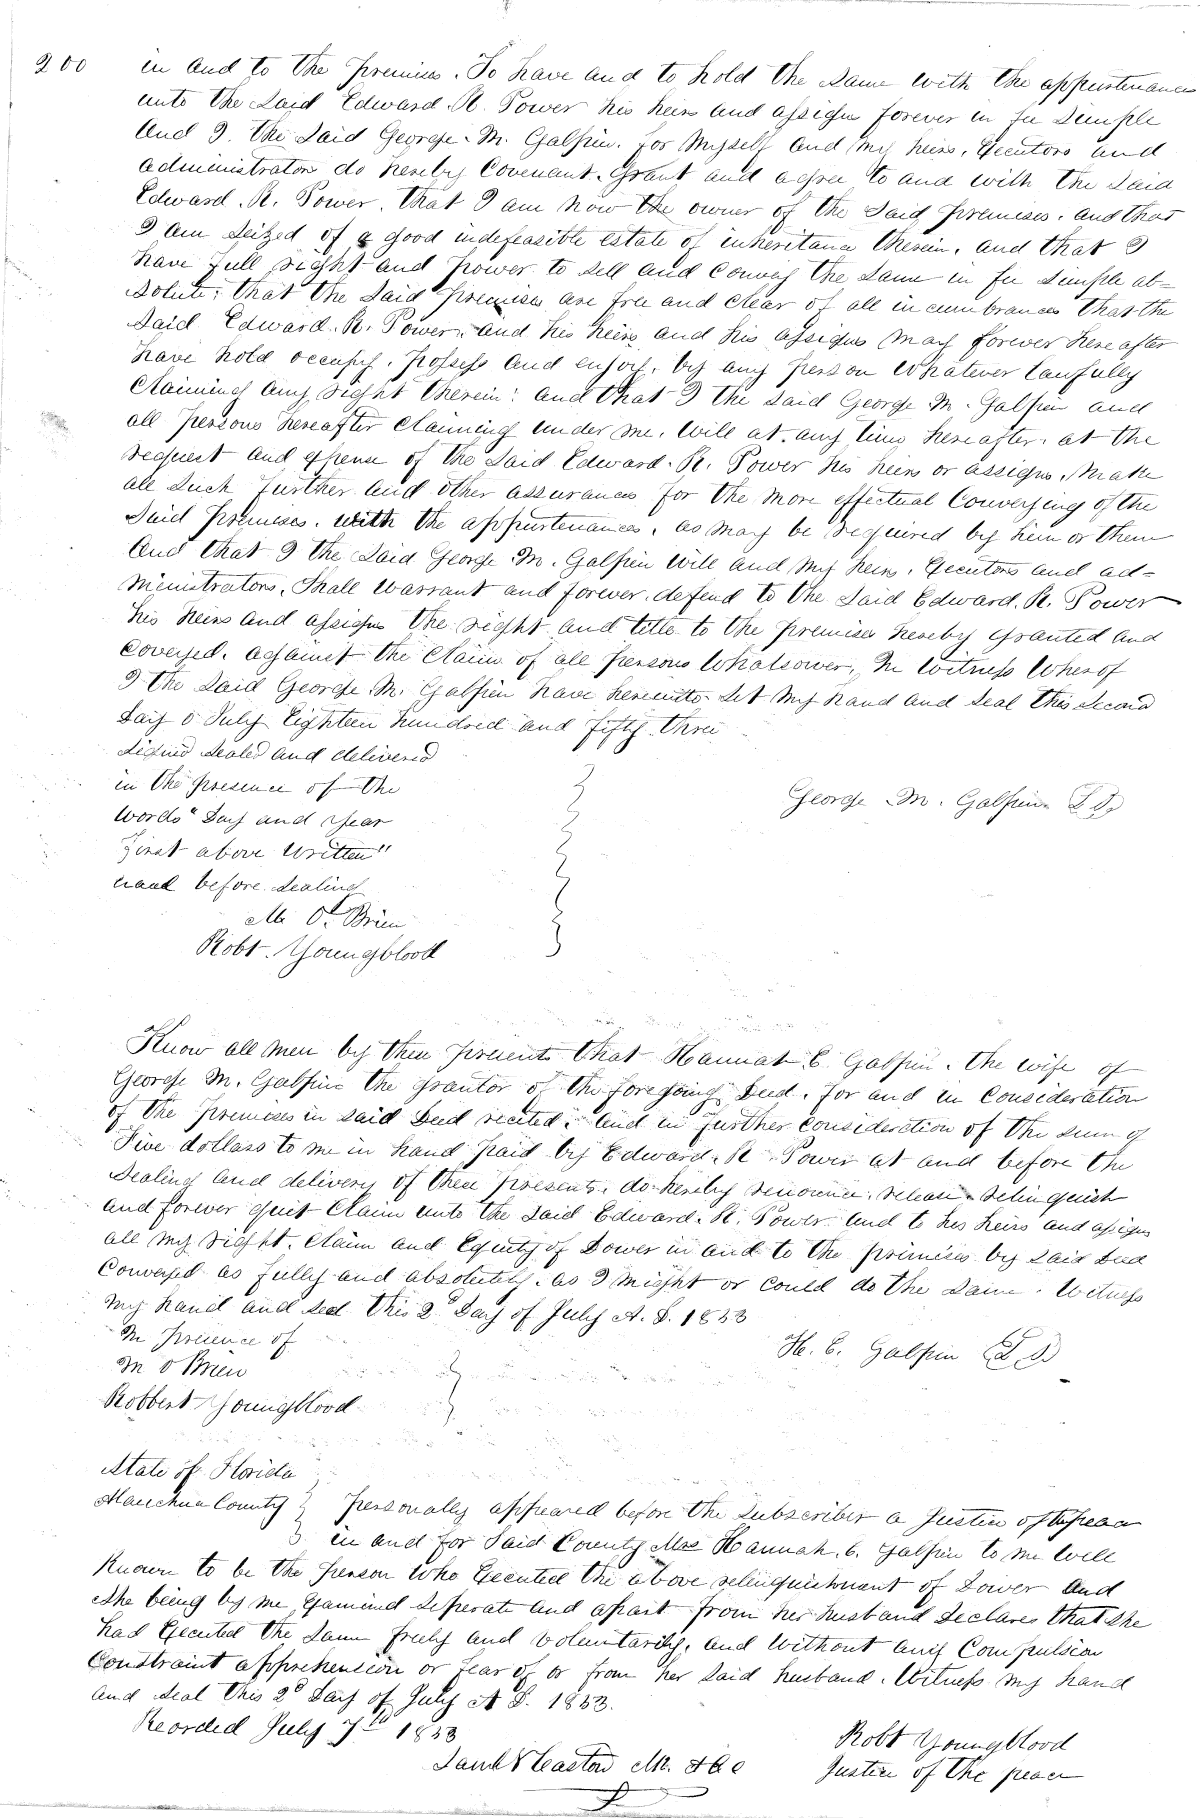 200
in and to the premises. To have and to hold the same with the appurtenances
unto the said Edward. R. Power his heirs and assigns forever in fee simple
And I. the said George. M. Galpin. for myself and my heirs, Executors and
administrators do hereby Covenant. Grant and agree to and with the said
Edward. R. Power. that I am now the owner of the said premises. and that
I am seized of a good indefeasible estate of inheritance therein. and that I
have full right and power to sell and convey the same in fee simple ab=
solute; that the said premises are free and clear of all incumbrances that the
said Edward. R. Power. and his heirs and his assigns may forever hereafter
have hold occupy. possess and enjoy. by any person whatever lawfully
claiming any right therein: and that I the said George M. Galpin and
all persons hereafter claiming under me. will at. any time hereafter. at the
request and expense of the said Edward. R. Power his heirs or assigns. make
all such further and other assurances for the more effectual Conveying of the
said premises. with the appurtenances. as may be required by him or them
And that I the said George M. Galpin will and my heirs. Executors and ad=
ministrators. shall warrant and forever. defend to the said Edward. R. Power
his heirs and assigns the right and title to the premises hereby granted and
coveyed. against the claim of all persons whatsower. In witness wherof
I the said George. M. Galpin have hereunto set my hand and seal this second
Day o July Eighteen hundred and fifty three
Signed sealed and delivered
in the presence of the
words "Day and year
first above written"
before sealing
George M. Galpin L S
M. O. Brien
Robt. Youngblood
Know all men by these presents that Hannah. C. Galpin. the wife of
George M. Galpin the grantor of the foregoing Deed. for and in consideration
of the premises in said Deed recited; and in further consideration of the sum of
Five dollars to me in hand paid by Edward. R. Power at and before the
sealing and delivery of these presents. do hereby renounce. release relinquish
and forever quit claim unto the said Edward. R. Power and to his heirs and assigns
all my right. claim and Equity of Dower in and to the premises by said Deed
Conveyed as fully and absolutely. as I might or could do the same. Witness
my hand and seal this 2d Day of July A. D. 1853
In presence of
H. C. Galpin L S
M O Brien
Robbert Youngblood
State of Florida
Alauchua County personally appeared before the subscriber a Justice of the peace
in and for said County Mrs Hannah. C. Galpin to me well
Known to be the person who Executed the above relinquishment of Dower and
she being by me Examined seperate and apart from her husband Declares that she
had Executed the same freely and voluntarily. and without any Compulsion
Constraint apprehension or fear of or from her said husband. Witness my hand
and seal this 2d Day of July A D. 1853.
Reorded July 7th 1853
Robt Youngblood
Justice of the peace